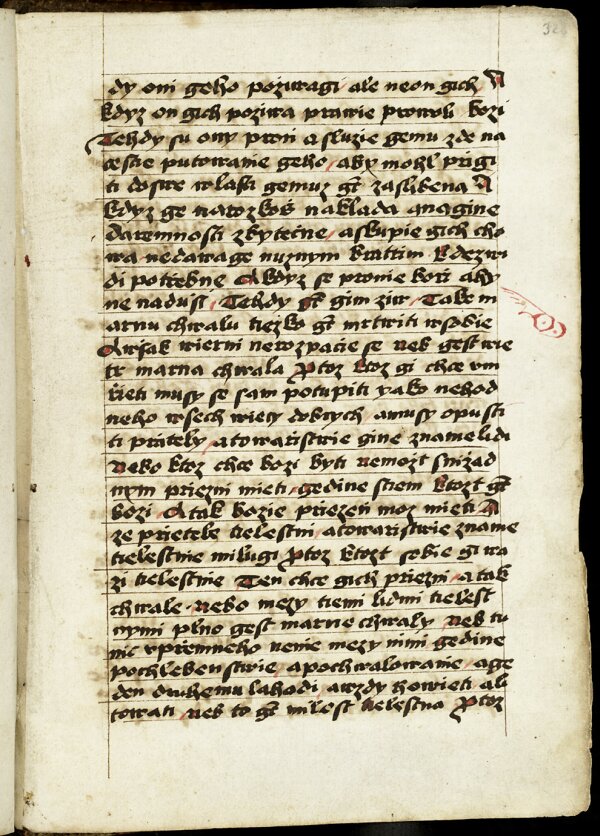 328
dy oni geho poziwagi ale neon gich A
kdyz on gich poziwa prawie prowoli bozi
Tehdy su ony proń a sluzie gemu zde na
cestie putowanie geho aby mohl prigi
ti do swe wlasti gemuz gt zaslibena A
kdyz ge na rozkoš naklada anagine
daremnosti zbytečne a skupie gich cho
wa nedawage nuznym bratrim k dezwi
di potřebne A kdyz se pronie boži aby
ne nadusil Tehdy gt gim ziw Take m
arnu chwalu tiezko gt mrtwiti w sobie
A wšak wierni nerozpacie se neb gest wie
tr marna chwala Protoz ktoz gi chce vm
řieti musy se sam potupiti yako nehod
neho wsech wiecy dobrych a musy opusti
ti prately a towaristwie gine zname lidi
Nebo ktoz chce bozi byti nemozt s nizad
nym priezni mieti gedine s tiem ktozt gt
bozi A tak bozie priezeń moz mieti A
ze prietele tielestni a towaristwie zname
tielestnie milugi Protoz ktozt sobie gi wa
zi tielestnie Ten chce gich priezni a tak
chwale nebo mezy tiemi lidmi tielest
nymi plno gest marne chwaly neb tu
nic vpriemneho nenie mezy nimi gedine
pochlebenstwie a pochwalowanie a ge
den druhemu lahodi a wzdy howieti ali
towati neb to gt milost tielestna Protoz